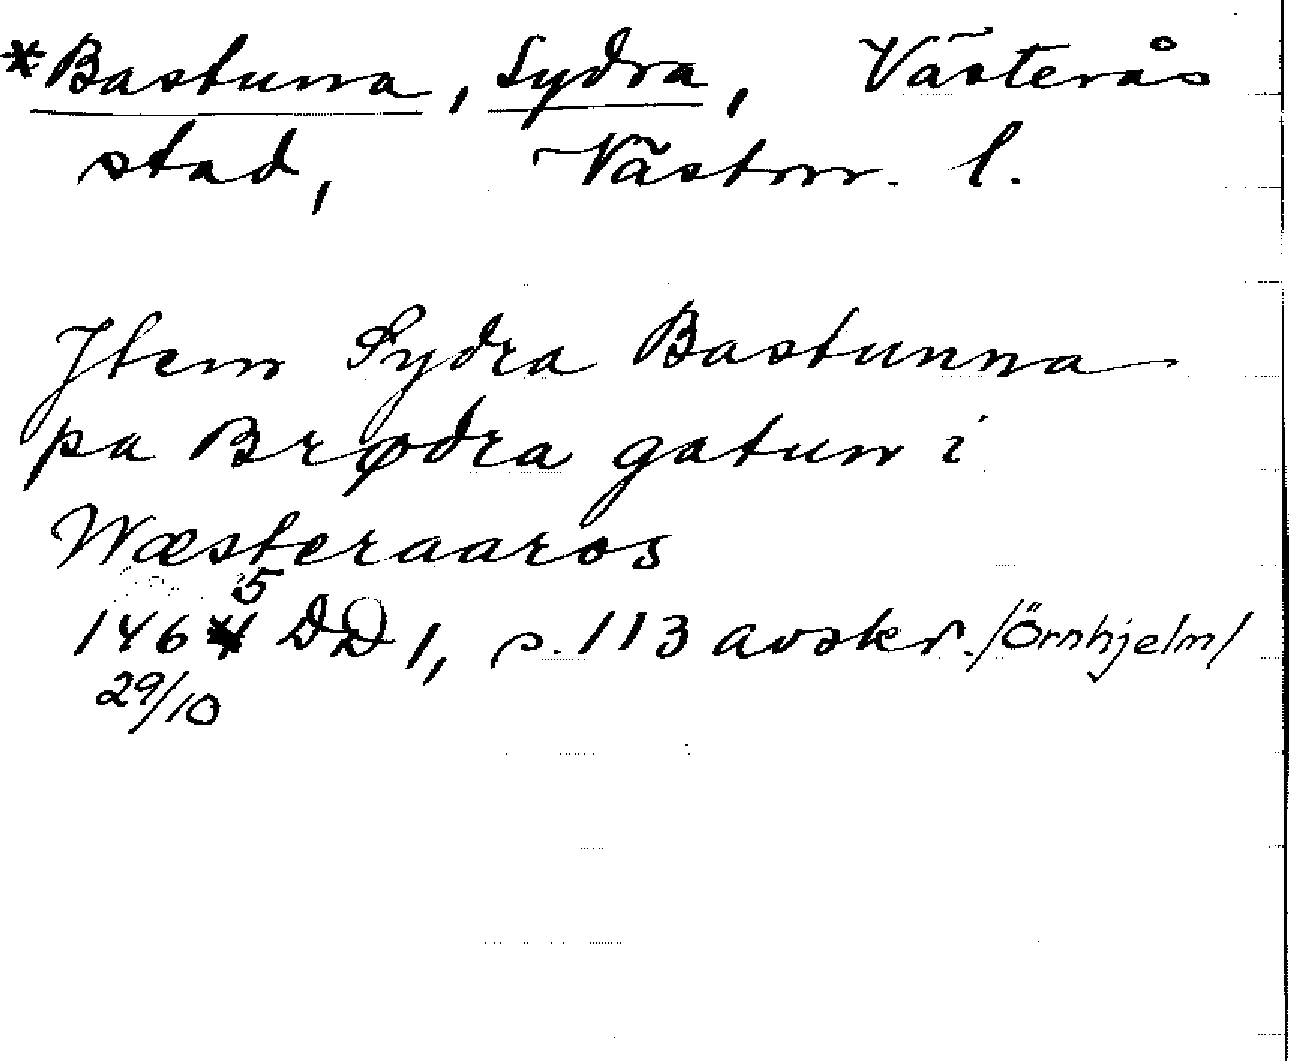 *Bastuna, Sydra, Västerås
stad, Västm. l.
Jtem Sydra Bastunna
pa Brødra gatun i
Wæsteraaros
1465 DD 1, s. 113 avskr. /Örnhjelm/
29/10